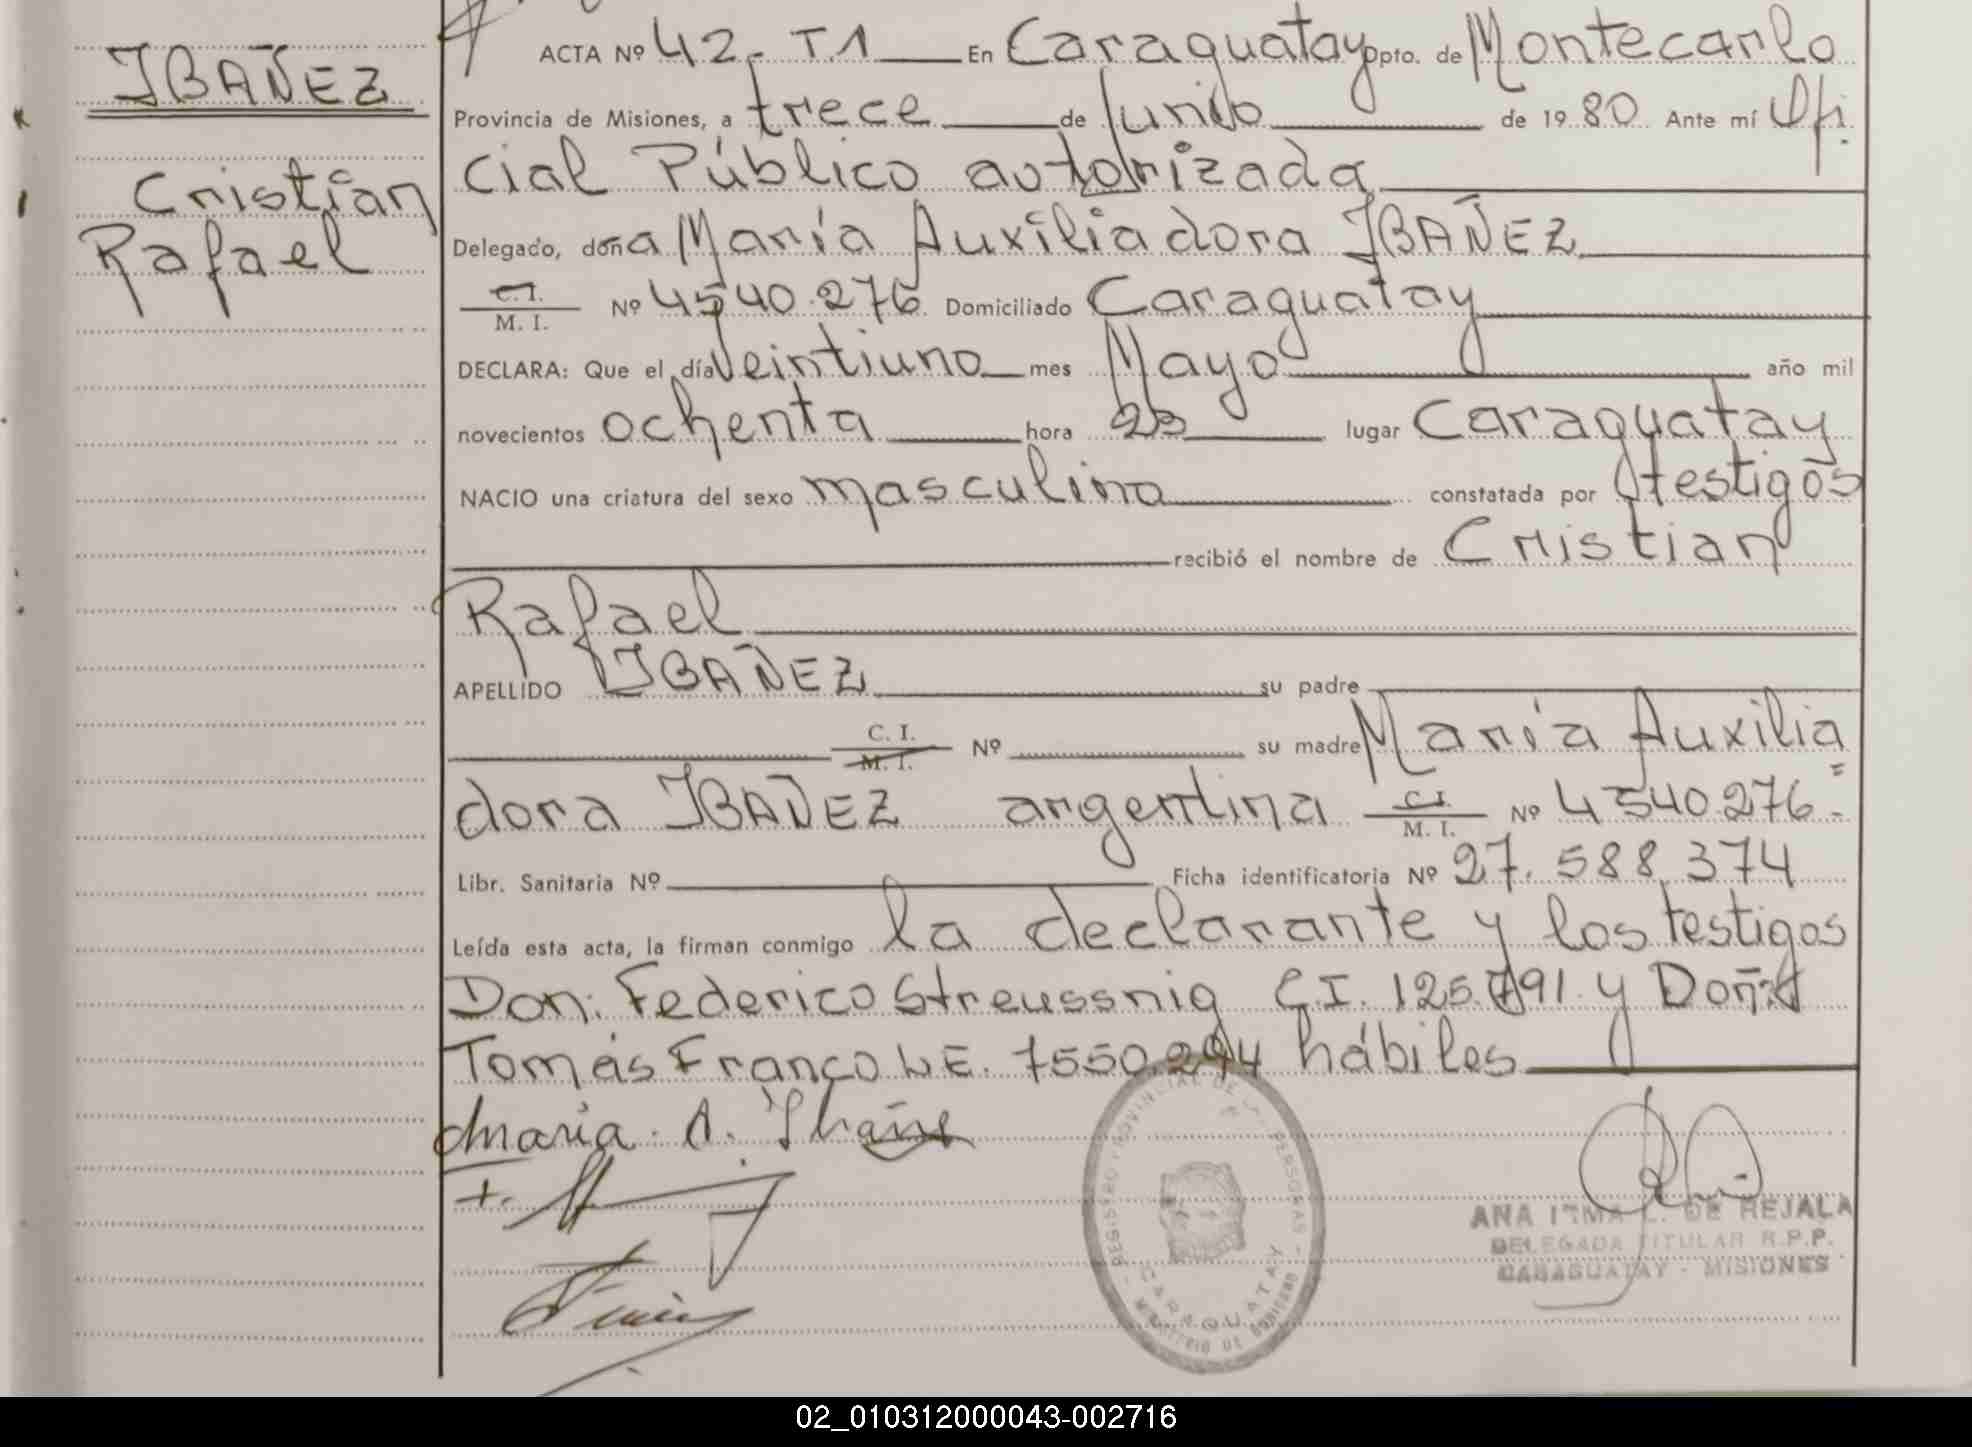 IBAÑEZ
Cristian
Rafael
ACTA Nº 42- T1 En Caraguatay Dpto. de Montecarlo
Provincia de Misiones, a trece de Junio de 1980 Ante mí Ofi
cial Público autorizada
Delegado, doña María Auxiliadora IBAÑEZ
C.I. M. I. Nº 4540.276 Domiciliado Caraguatay
DECLARA: Que el día Veintiuno mes Mayo año mil
novecientos ochenta hora lugar Caraguatay
NACIO una criatura del sexo masculino constatada por testigos
recibió el nombre de Cristian
Rafael
APELLIDO IBAÑEZ su padre
C. I. M. I. Nº su madre María Auxilia
dora IBAÑEZ argentina C.I. M. I. Nº 4540.276.-
Libr. Sanitaria Nº Ficha identificatoria Nº 27.588.374
Leída esta acta, la firman conmigo la declarante y los testigos
Don: Federico Streussnig C.I. 125.791. y Don
Tomás Franco L.E. 7550.294 hábiles
María. A. Ibañe
REGISTRO PROVINCIAL DE LAS PERSONAS
CARAGUATAY
MINISTERIO DE GOBIERNO
ANA IRMA L. DE REJALA
DELEGADA TITULAR R.P.P.
CARAGUATAY - MISIONES
02_010312000043-002716